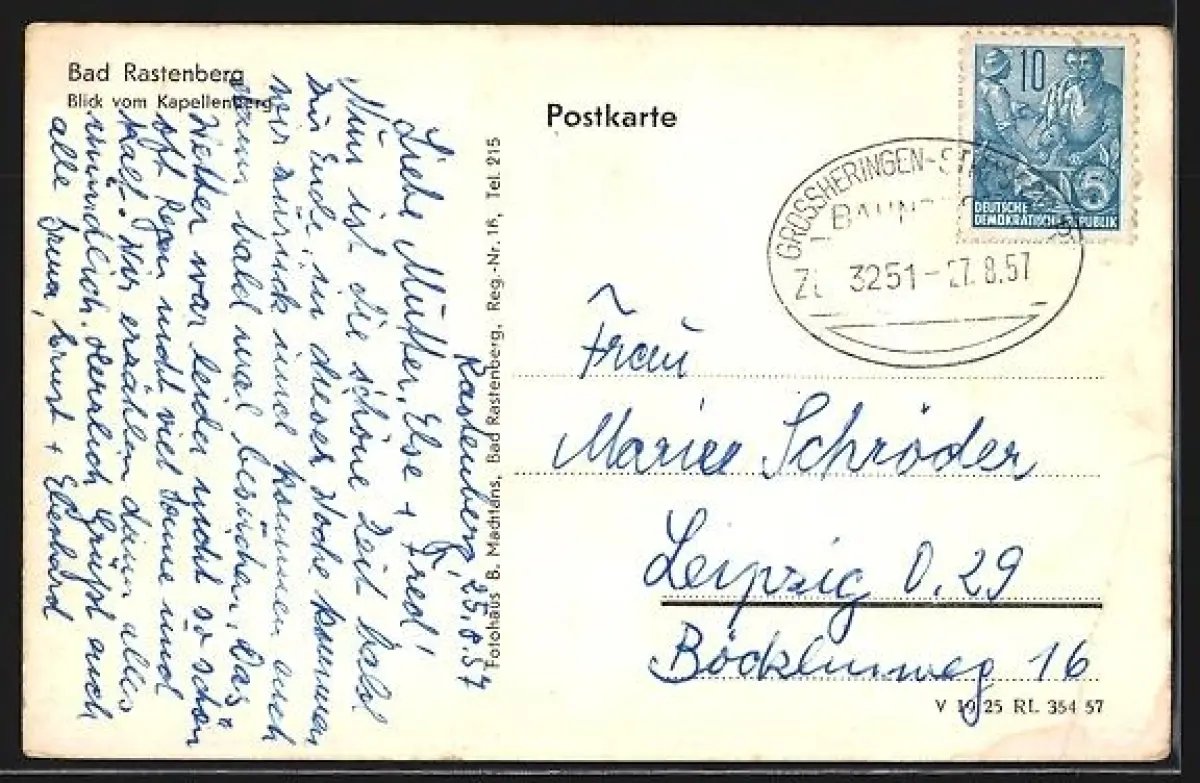 Bad Rastenberg
Blick vom Kapellenberg
Postkarte
10
5
DEUTSCHE
DEMOKRATISCHE REPUBLIK
GROSSHERINGEN-
3251 - 27.8.57
Rastenberg, 25.8.57
Liebe Mutter, Else + Fred!
Nun ist die schöne Zeit bald
zur Ende, in dieser Woche kommen
wir zurück und kommen auch
dann bald mal besuchen. Das
Wetter war leider nicht so schön
oft Regen und nicht viel Sonne und
kalt. Wir erzählen dann alles
mündlich. Herzlich grüßt auch
alle Erna, Ernst + Eberhard
Fotohaus B. Machtans, Bad Rastenberg, Reg.-Nr. 18, Tel. 215
Frau
Marie Schröder
Leipzig O. 29
Böcklinweg 16
V 19 25 RL 354 57